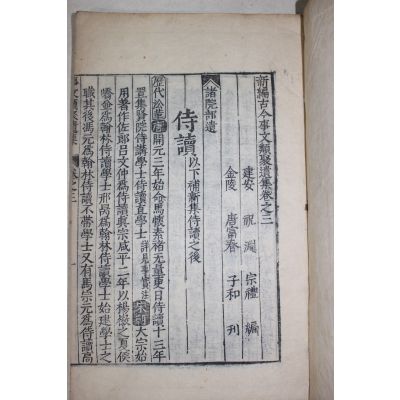 新編古今事文類聚遺集卷之三
建安 祝淵 宗禮 編
金陵 唐富春 子和 刊
諸院部遺
侍讀 以下補新集侍讀之後
歷代沿革 唐 開元三年始命馬懷素褚无量更日侍讀十三年
置集賢院侍講學士侍讀直學士 詳見事實注 宋朝 太宗始
用著作佐郎呂文仲爲侍讀眞宗咸平二年以楊徽之夏侯
嶠並爲翰林侍讀學士邢昺爲翰林侍讀學士始建學士之
職其後馮元爲翰林侍讀不帶學士又有馬宗元爲侍讀高
事文類聚遺集 卷之三